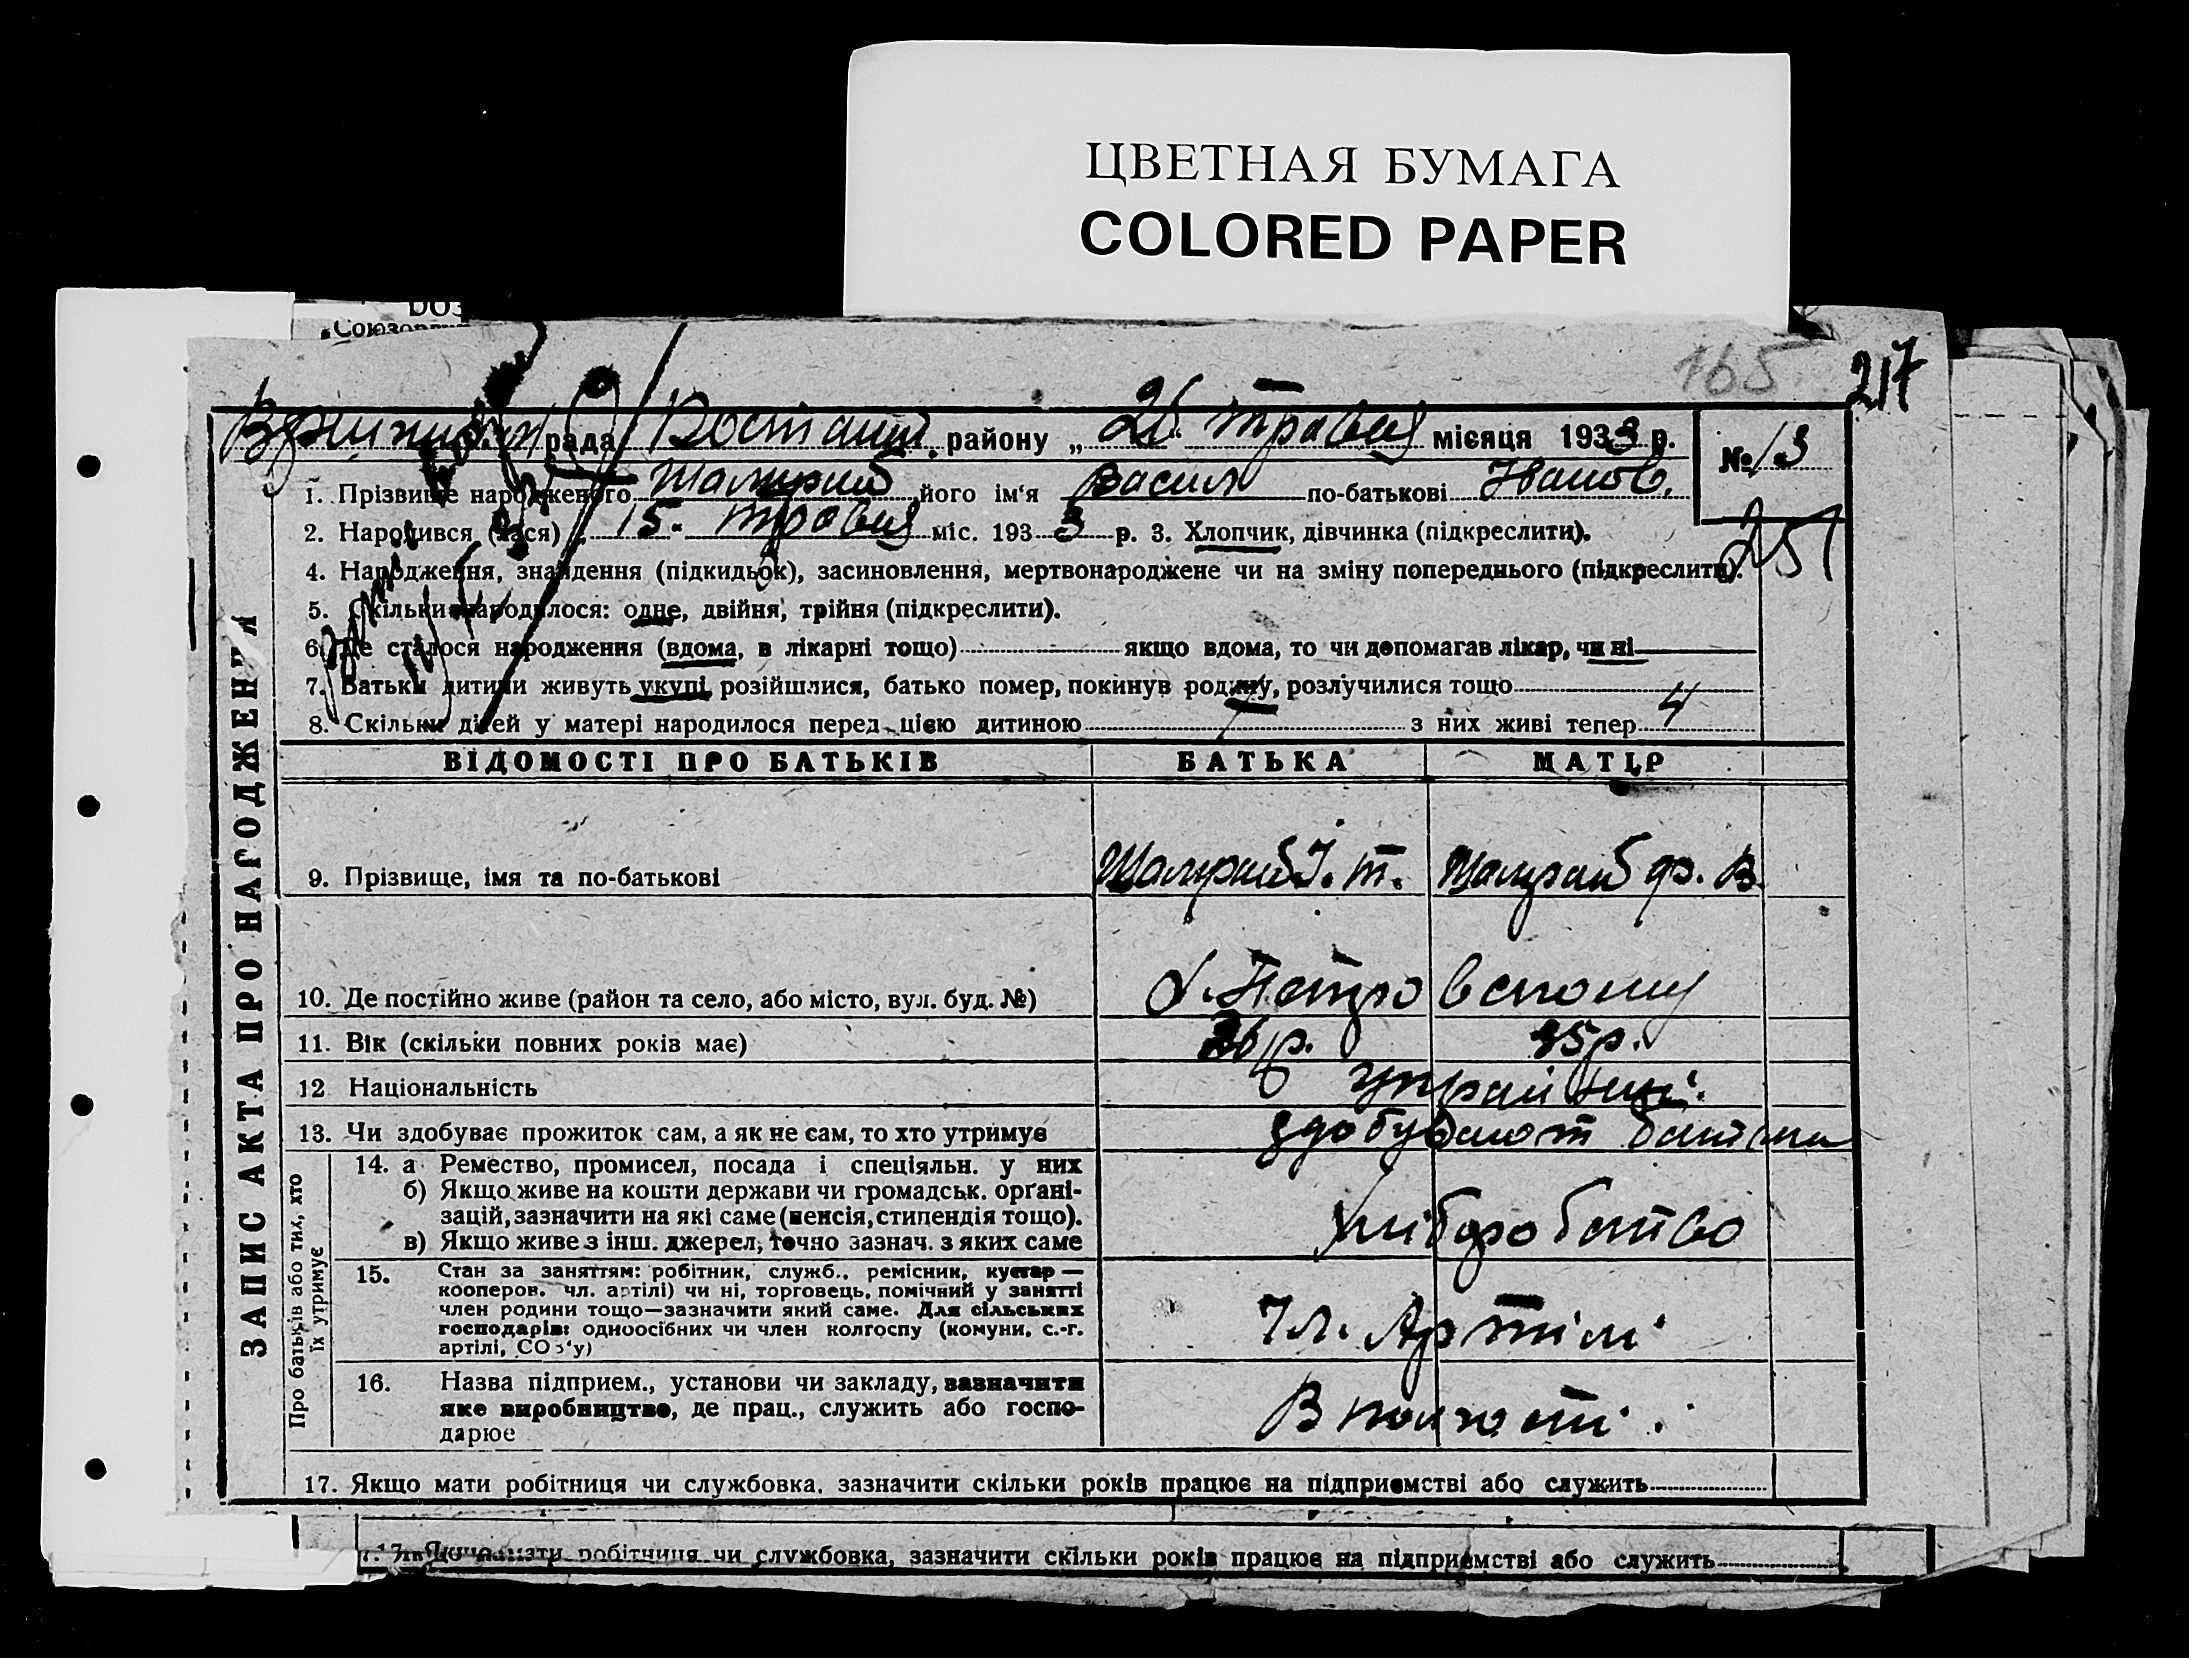 ЦВЕТНАЯ БУМАГА
COLORED PAPER
165 217
рада району „26“ травня місяця 1933 р. № 13
1. Прізвище народженого Шамрай його ім'я Васил по-батькові Іванов.
2. Народився (лася) 15. травня міс. 1933 р. 3. Хлопчик, дівчинка (підкреслити).
251
4. Народження, знайдення (підкидьок), засиновлення, мертвонароджене чи на зміну попереднього (підкреслити).
5. Скільки народилося: одне, двійня, трійня (підкреслити).
6. Де сталося народження (вдома, в лікарні тощо) якщо вдома, то чи допомагав лікар, чи ні
7. Батьки дитини живуть укупі, розійшлися, батько помер, покинув родину, розлучилися тощо
8. Скільки дітей у матері народилося перед цією дитиною 7 з них живі тепер 4
ЗАПИС АКТА ПРО НАРОДЖЕННЯ
ВІДОМОСТІ ПРО БАТЬКІВ БАТЬКА МАТІР
9. Прізвище, імя та по-батькові Шамрай І. Т. Шамрай Ф. В.
10. Де постійно живе (район та село, або місто, вул. буд. №) с. Петровському
11. Вік (скільки повних років має) 36 р. 35 р.
12 Національність українці
13. Чи здобуває прожиток сам, а як не сам, то хто утримує здобувают
Про батьків або тих, хто їх утримує
14. а Ремество, промисел, посада і спеціяльн. у них
б) Якщо живе на кошти держави чи громадськ. орґані-
зацій, зазначити на які саме (пенсія, стипендія тощо).
в) Якщо живе з інш. джерел, точно зазнач. з яких саме
хліборобство
15. Стан за заняттям: робітник, служб., ремісник, кустар —
кооперов. чл. артілі) чи ні, торговець, помічний у занятті
член родини тощо—зазначити який саме. Для сільських
господарів: одноосібних чи член колгоспу (комуни, с.-г.
артілі, СОЗ'у)
Чл. Артілі
16. Назва підприєм., установи чи закладу, зазначити
яке виробництво, де прац., служить або госпо-
дарює
17. Якщо мати робітниця чи службовка, зазначити скільки років працює на підприємстві або служить
17. Якщо мати робітниця чи службовка, зазначити скільки років працює на підприємстві або служить